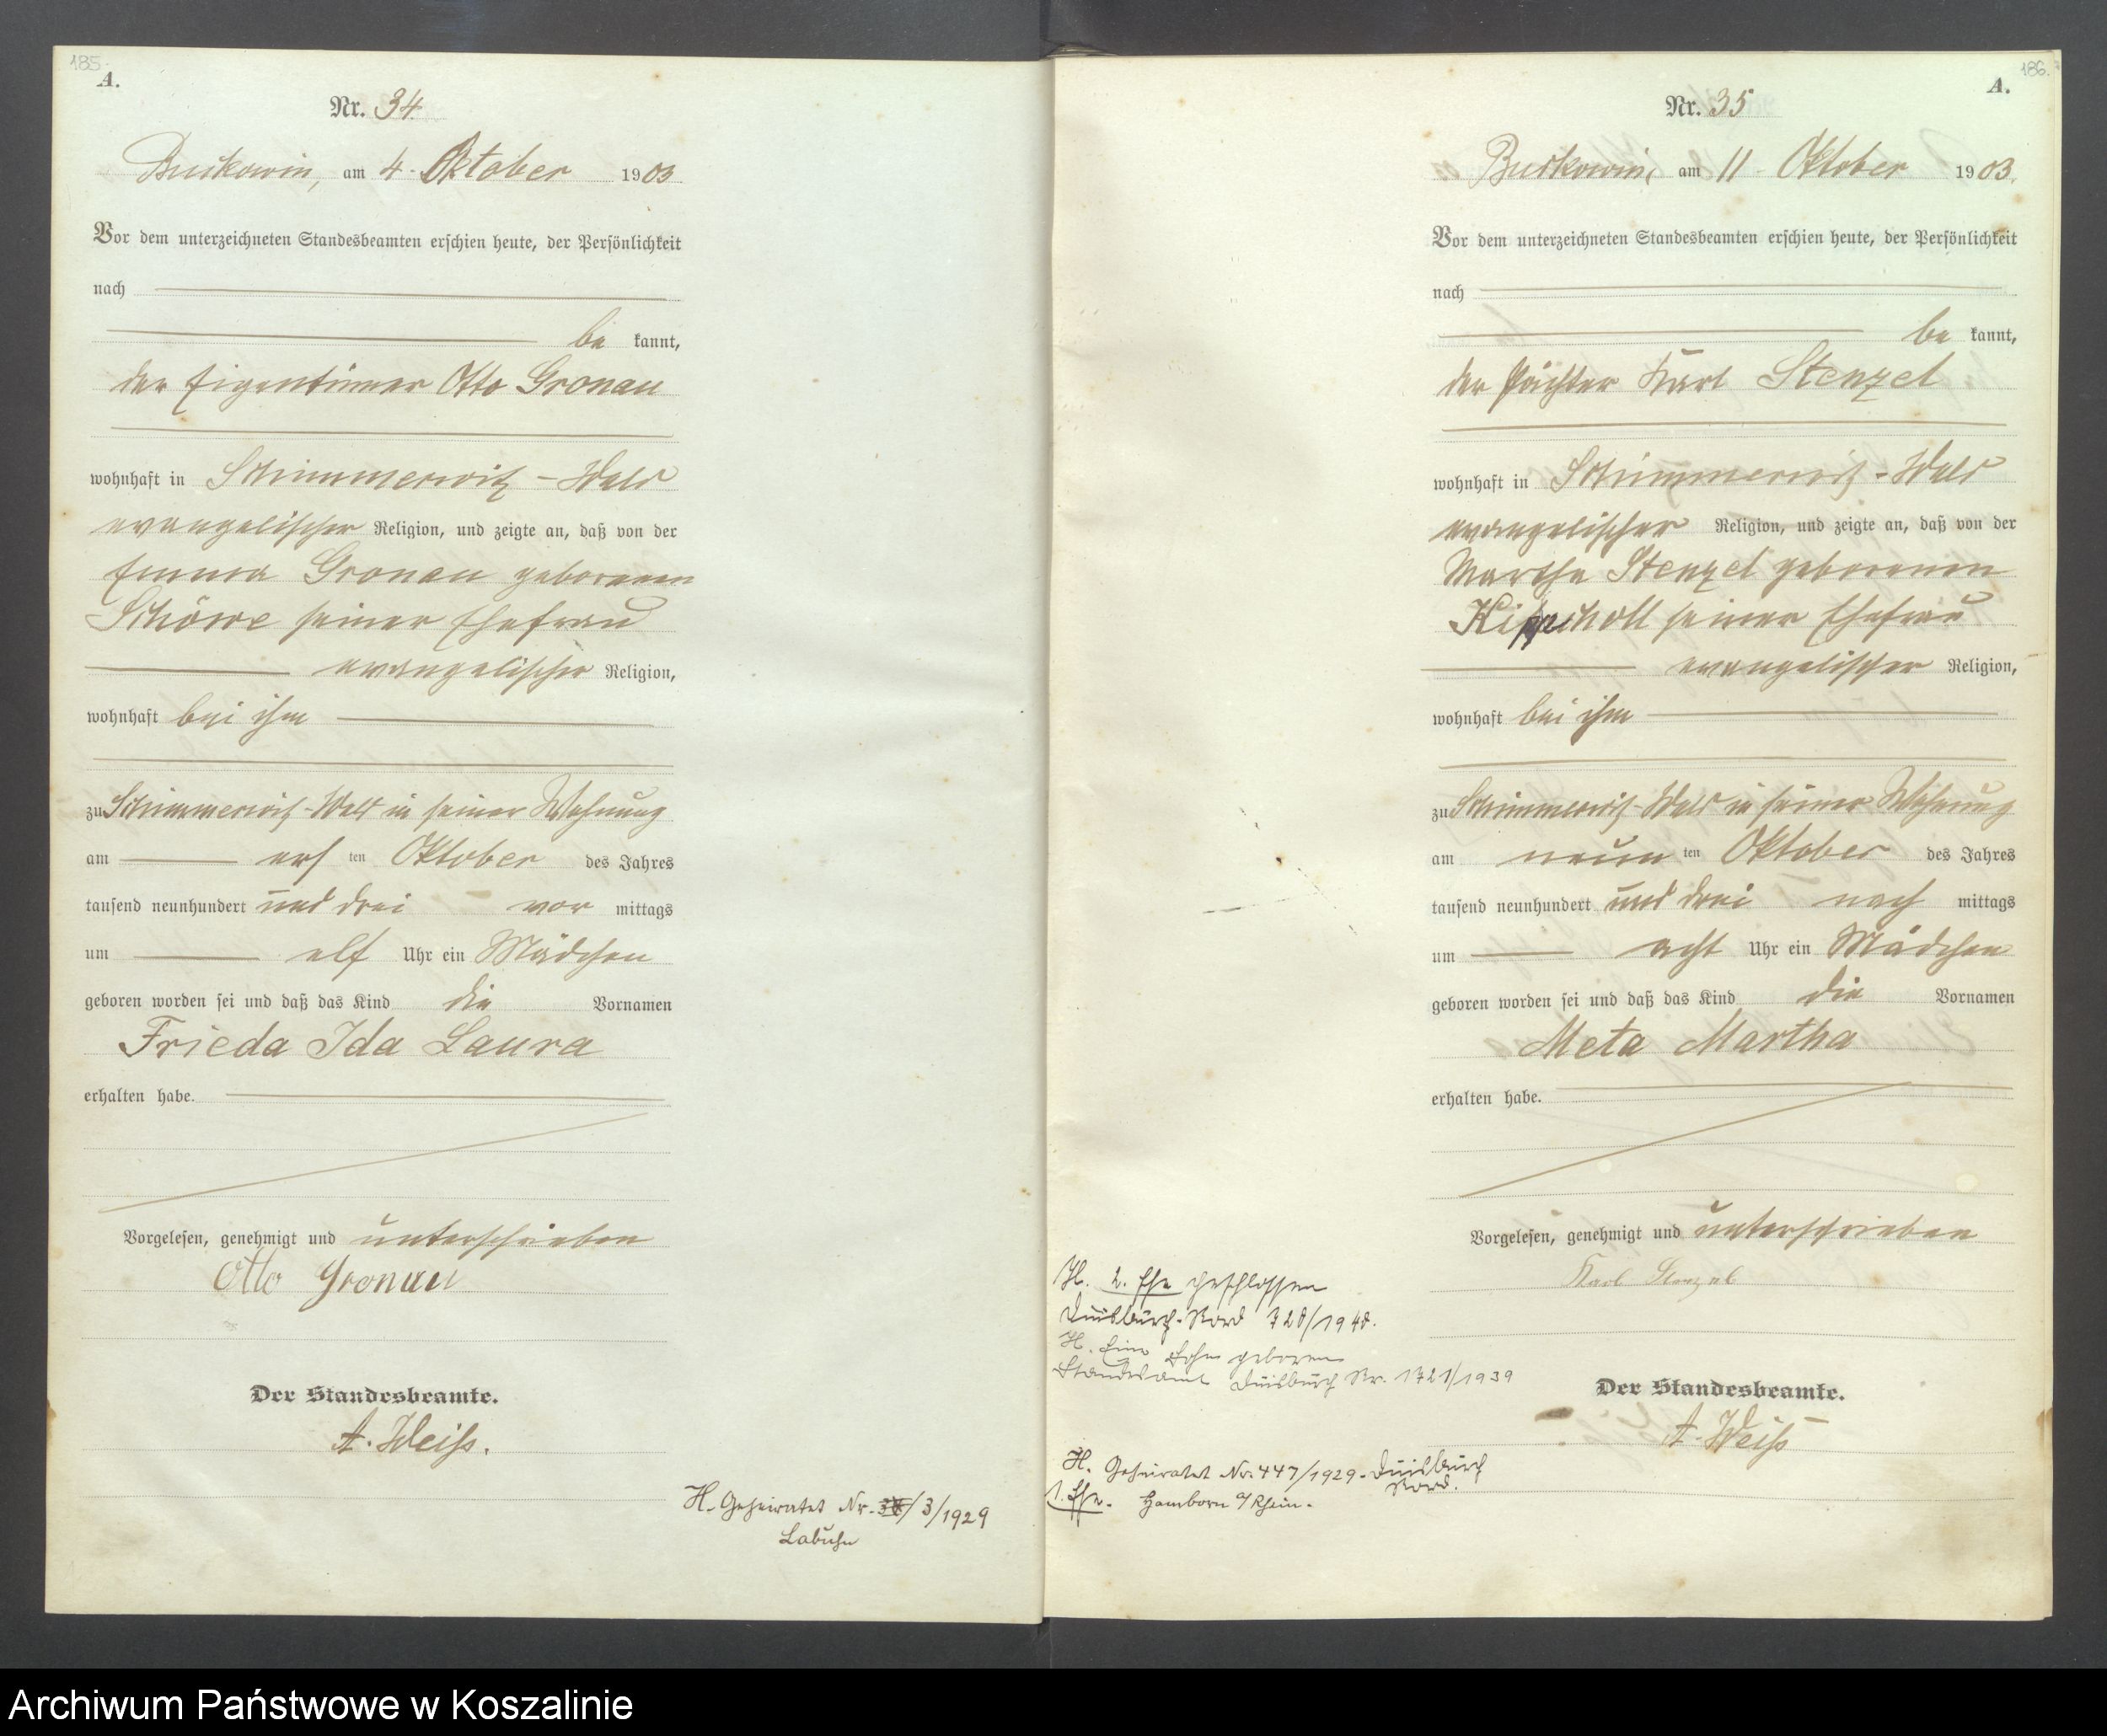 185.
A.
Nr. 34
Buckowin, am 4. Oktober 1903
Vor dem unterzeichneten Standesbeamten erschien heute, der Persönlichkeit
nach
be kannt,
der Eigentümer Otto Gronau
wohnhaft in Schimmerwitz-Wald
evangelischer Religion, und zeigte an, daß von der
Emma Gronau geborenen
Schöwe seiner Ehefrau
evangelischer Religion,
wohnhaft bei ihm
zu Schimmerwitz-Wald in seiner Wohnung
am ersten Oktober des Jahres
tausend neunhundert und drei vor mittags
um elf Uhr ein Mädchen
geboren worden sei und daß das Kind die Vornamen
Frieda Ida Laura
erhalten habe.
Vorgelesen, genehmigt und unterschrieben
Otto Gronau
Der Standesbeamte.
A. Weiß.
H. Geheiratet Nr. 3/1929
Labuhn
186.
A.
Nr. 35
Buckowin, am 11. Oktober 1903.
Vor dem unterzeichneten Standesbeamten erschien heute, der Persönlichkeit
nach
be kannt,
der Pächter Karl Stenzel
wohnhaft in Schimmerwitz-Wald
evangelischer Religion, und zeigte an, daß von der
Martha Stenzel geborenen
seiner Ehefrau
evangelischer Religion,
wohnhaft bei ihm
zu Schimmerwitz-Wald in seiner Wohnung
am neunten Oktober des Jahres
tausend neunhundert und drei nach mittags
um acht Uhr ein Mädchen
geboren worden sei und daß das Kind die Vornamen
Meta Martha
erhalten habe.
Vorgelesen, genehmigt und unterschrieben
Karl Stenzel
Der Standesbeamte.
A. Weiß
H. 2. Ehe geschlossen
Duisburg-Nord 728/1940.
H. Eine Sohn geboren
Standesamt Duisburg Nr. 1721/1939
H. Geheiratet Nr. 447/1929 - Duisburg
Nord.
1. Ehe. Hamborn a/Rhein.
Archiwum Państwowe w Koszalinie